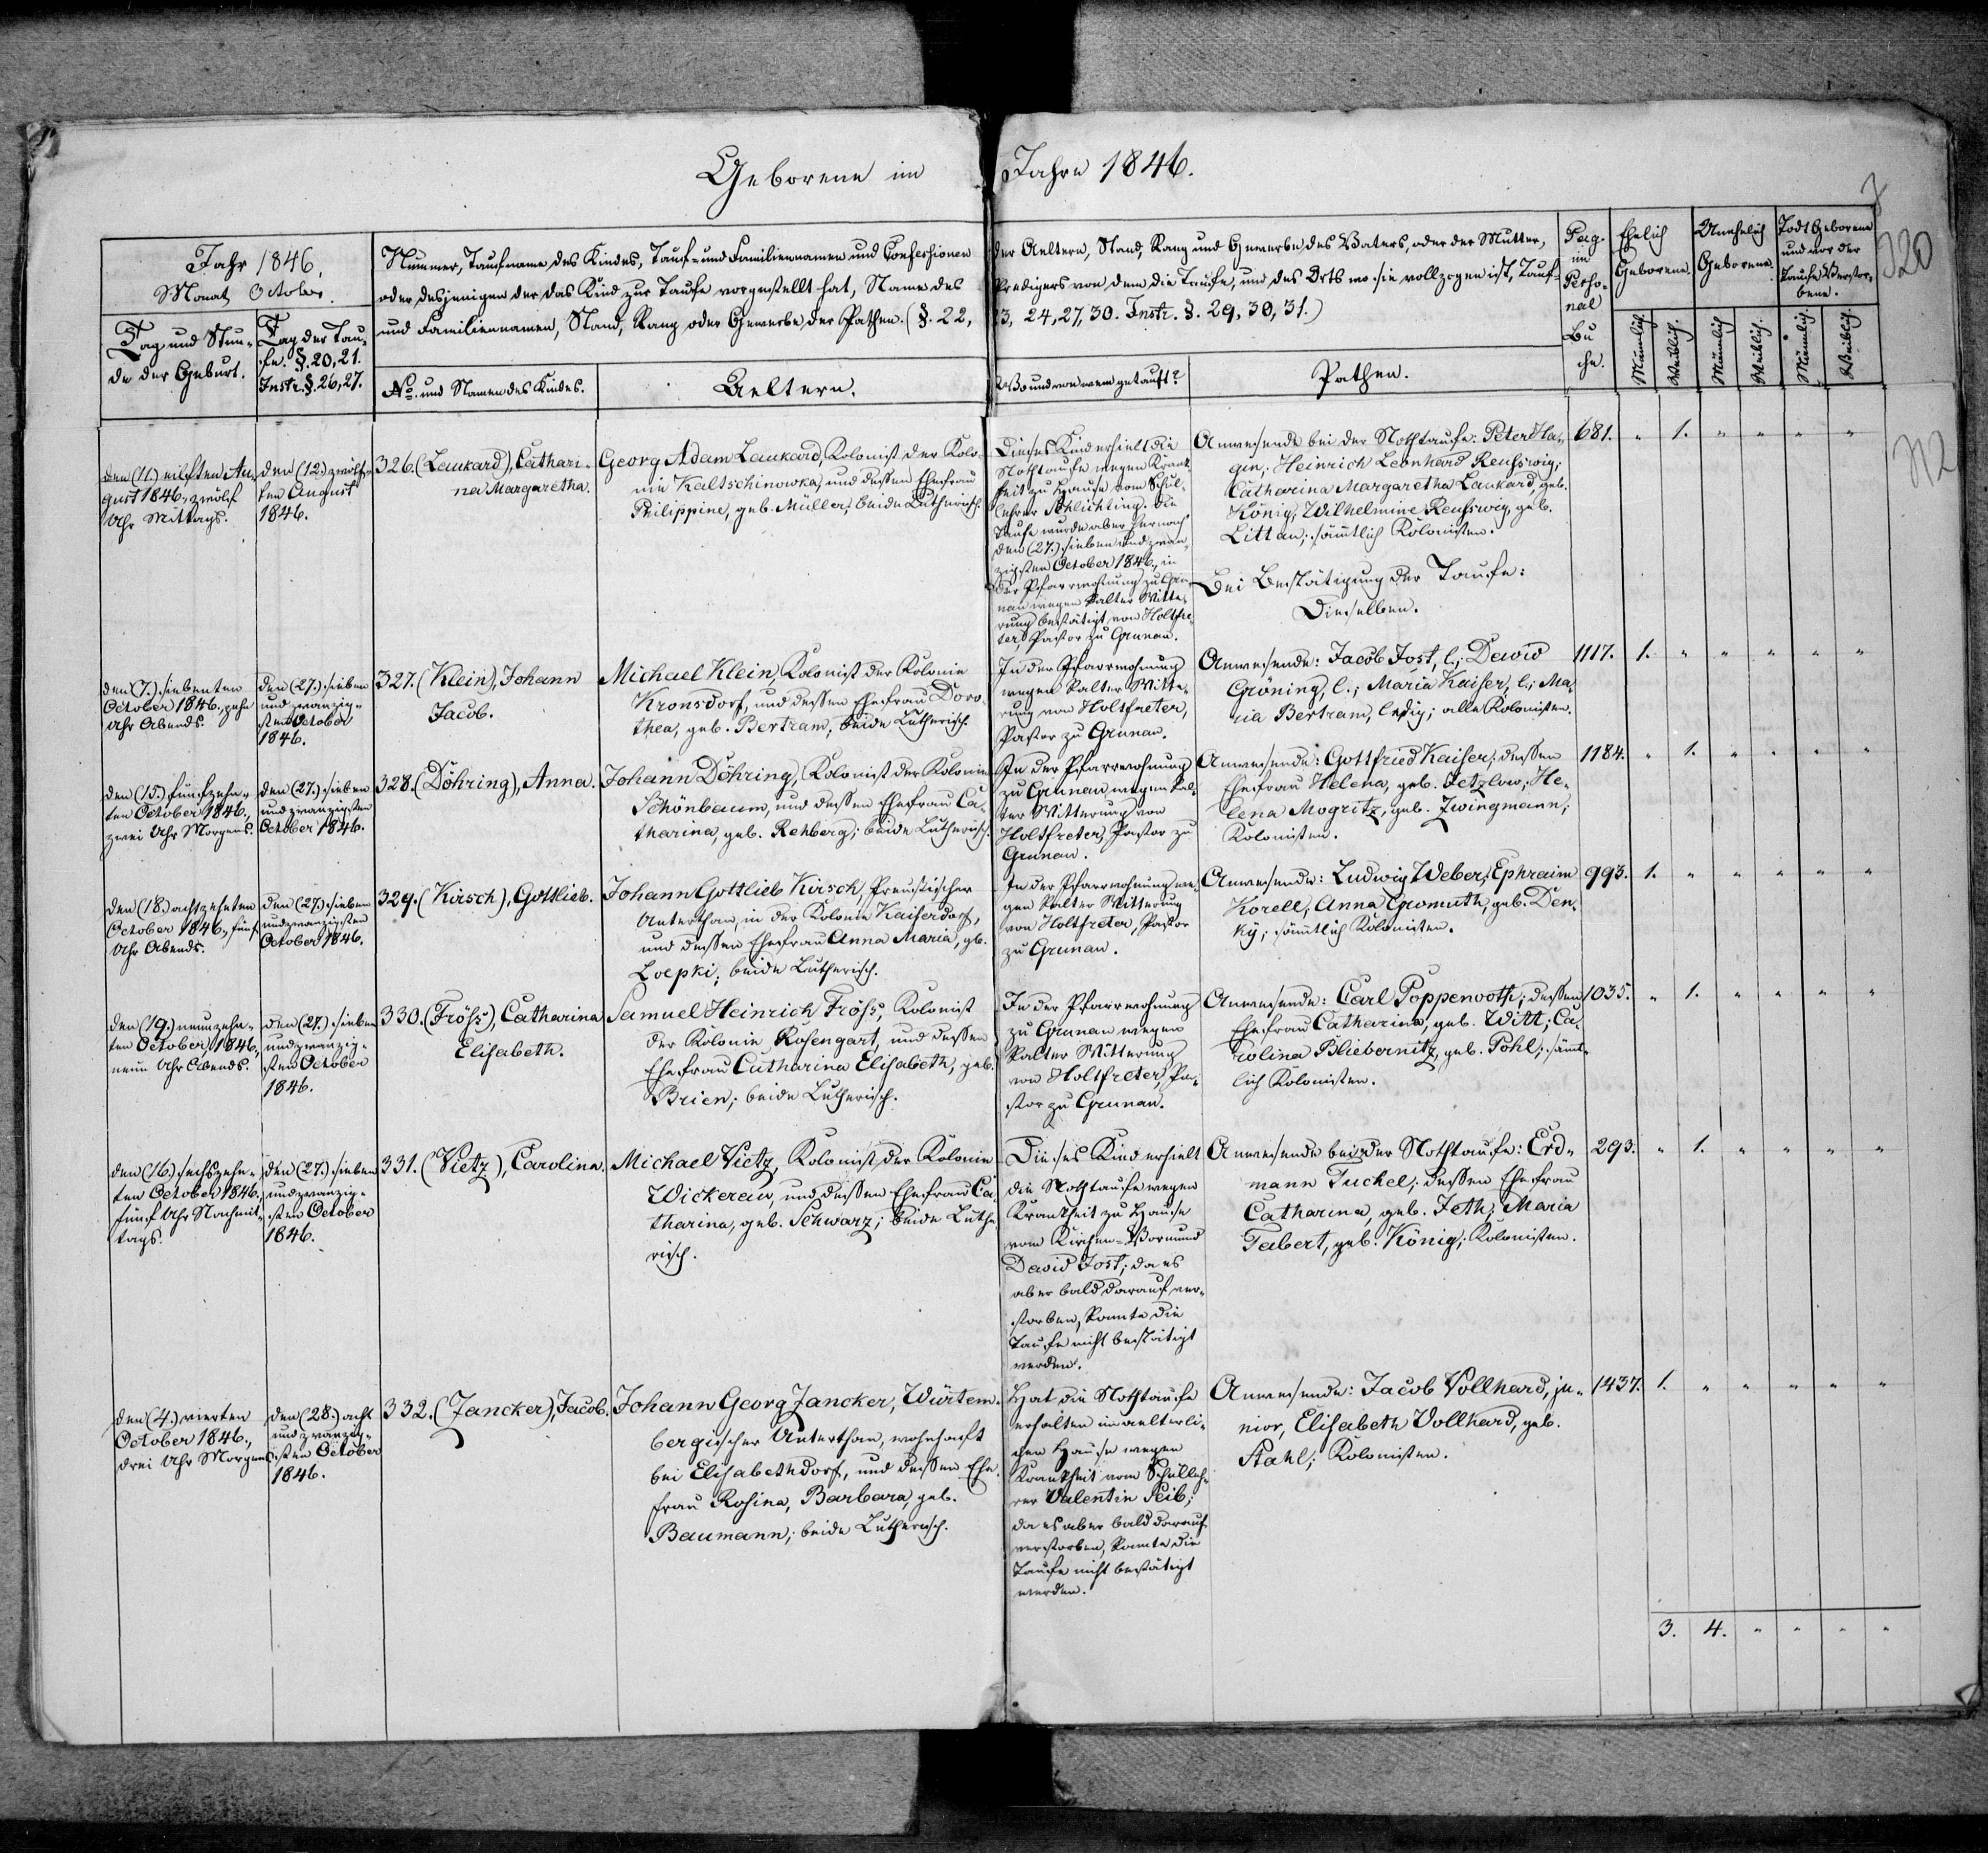 Geborene im Jahre 1846.
320
Jahr 1846.
Monat October.
Tag und Stun-
de der Geburt.
Tag der Tau-
fe. §. 20, 21.
Instr. §. 26, 27.
Nummer, Taufname des Kindes, Tauf- und Familiennamen und Confessionen
oder desjenigen der das Kind zur Taufe vorgestellt hat, Name des
und Familiennamen, Stand, Rang oder Gewerbe der Pathen. (§. 22,
No. und Namen des Kindes.
Aeltern.
der Aeltern, Stand, Rang und Gewerbe des Vaters, oder der Mutter,
Predigers von dem die Taufe, und des Orts wo sie vollzogen ist, Tauf-
23, 24, 27, 30. Instr. §. 29, 30, 31.)
Wo und von wem getauft?
Pathen.
Pag.
im
Perso-
nal
Bu
che.
Ehelich
Geborene.
Männlich.
Weiblich.
Unehelich
Geborene.
Männlich
Weiblich.
Todt Geborene
und vor der
Taufe Verstor-
bene.
Männlich.
Weiblich.
den (11.) eilften Au-
gust 1846., zwölf
Uhr Mittags.
den (12.) zwölf-
ten August
1846.
326. (Laukard), Cathari-
na Margaretha.
Georg Adam Laukard, Kolonist der Kolo-
nie Kaltschinowka, und dessen Ehefrau
Philippine, geb. Müller; beide Lutherisch.
Dieses Kind erhielt die
Nothtaufe wegen Krank-
heit zu Hause vom Schul-
lehrer Schlichting. Die
Taufe wurde aber hernach
den (27.) sieben und zwan-
zigsten October 1846., in
der Pfarrwohnung zu Gru-
nau wegen kalter Witte-
rung bestätigt von Holtfre-
ter, Pastor zu Grunau.
Anwesende bei der Nothtaufe: Peter Ha-
gen; Heinrich Leonhard Reusswig;
Catharina Margaretha Laukard, geb.
König; Wilhelmine Reusswig, geb.
Littau; sämtlich Kolonisten.
Bei Bestätigung der Taufe:
Dieselben.
681. " 1. " " " "
den (7.) siebenten
October 1846., zehn
Uhr Abends.
den (27.) sieben
und zwanzig-
sten October
1846.
327. (Klein), Johann
Jacob.
Michael Klein, Kolonist der Kolonie
Kronsdorf, und dessen Ehefrau Doro-
thea, geb. Bertram; beide Lutherisch.
In der Pfarrwohnung
wegen kalter Witte-
rung von Holtfreter,
Pastor zu Grunau.
Anwesende: Jacob Jost, l.; David
Gröning, l.; Maria Kaiser, l.; Ma-
ria Bertram, ledig; alle Kolonisten.
1117. 1. " " " " "
den (15.) fünfzehn-
ten October 1846.,
zwei Uhr Morgens.
den (27.) sieben
und zwanzigsten
October 1846.
328. (Döhring), Anna.
Johann Döhring, Kolonist der Kolonie
Schönbaum, und dessen Ehefrau Ca-
tharina, geb. Rehberg; beide Lutherisch.
In der Pfarrwohnung
zu Grunau wegen kal-
ter Witterung von
Holtfreter, Pastor zu
Grunau.
Anwesende: Gottfried Kaiser; dessen
Ehefrau Helena, geb. Jetzlow; He-
lena Mogritz, geb. Zwingmann;
Kolonisten.
1184. " 1. " " " "
den (18.) achtzehnten
October 1846., fünf
Uhr Abends.
den (27.) sieben
und zwanzigsten
October 1846.
329. (Kirsch), Gottlieb.
Johann Gottlieb Kirsch, Preussischer
Unterthan, in der Kolonie Kaiserdorf,
und dessen Ehefrau Anna Maria, gb.
Loepki; beide Lutherisch.
In der Pfarrwohnung we-
gen kalter Witterung
von Holtfreter, Pastor
zu Grunau.
Anwesende: Ludwig Weber; Ephraim
Korell; Anna Gromuth, geb. Den-
ky; sämtlich Kolonisten.
993. 1. " " " " "
den (19.) neunzehn-
ten October 1846.,
neun Uhr Abends.
den (27.) sieben
und zwanzig-
sten October
1846.
330. (Fröss), Catharina
Elisabeth.
Samuel Heinrich Fröss, Kolonist
der Kolonie Rosengart, und dessen
Ehefrau Catharina Elisabeth, geb.
Brien; beide Lutherisch.
In der Pfarrwohnung
zu Grunau wegen
kalter Witterung
von Holtfreter, Pa-
stor zu Grunau.
Anwesende: Carl Poppenooth; dessen
Ehefrau Catharina, geb. Witt; Ca-
rolina Bliebernitz, geb. Pohl; sämt-
lich Kolonisten.
1035. " 1. " " " "
den (16.) sechszehn-
ten October 1846.,
fünf Uhr Nachmit-
tags.
den (27.) sieben
und zwanzig-
sten October
1846.
331. (Vietz), Carolina.
Michael Vietz, Kolonist der Kolonie
Wickerau, und dessen Ehefrau Ca-
tharina, geb. Schwarz; beide Luthe-
risch.
Dieses Kind erhielt
die Nothtaufe wegen
Krankheit zu Hause
vom Kirchen-Vormund
David Jost; da es
aber bald darauf ver-
storben, konnte die
Taufe nicht bestätigt
werden.
Anwesende bei der Nothtaufe: Erd-
mann Tuchel; dessen Ehefrau
Catharina, geb. Jeth; Maria
Tabert, geb. König; Kolonisten.
293. " 1. " " " "
den (4.) vierten
October 1846.,
drei Uhr Morgens.
den (28.) acht
und zwanzig-
sten October
1846.
332. (Jancker), Jacob.
Johann Georg Jancker, Würtem-
bergischer Unterthan, wohnhaft
bei Elisabethdorf, und dessen Ehe-
frau Rosina, Barbara, geb.
Baumann; beide Lutherisch.
Hat die Nothtaufe
erhalten im aelterli-
chen Hause wegen
Krankheit vom Schulleh-
rer Valentin Seib;
da es aber bald darauf
verstorben, konnte die
Taufe nicht bestätigt
werden.
Anwesende: Jacob Vollhard, ju-
nior, Elisabeth Vollhard, geb.
Stahl; Kolonisten.
1437. 1. " " " " "
3. 4. " " " "